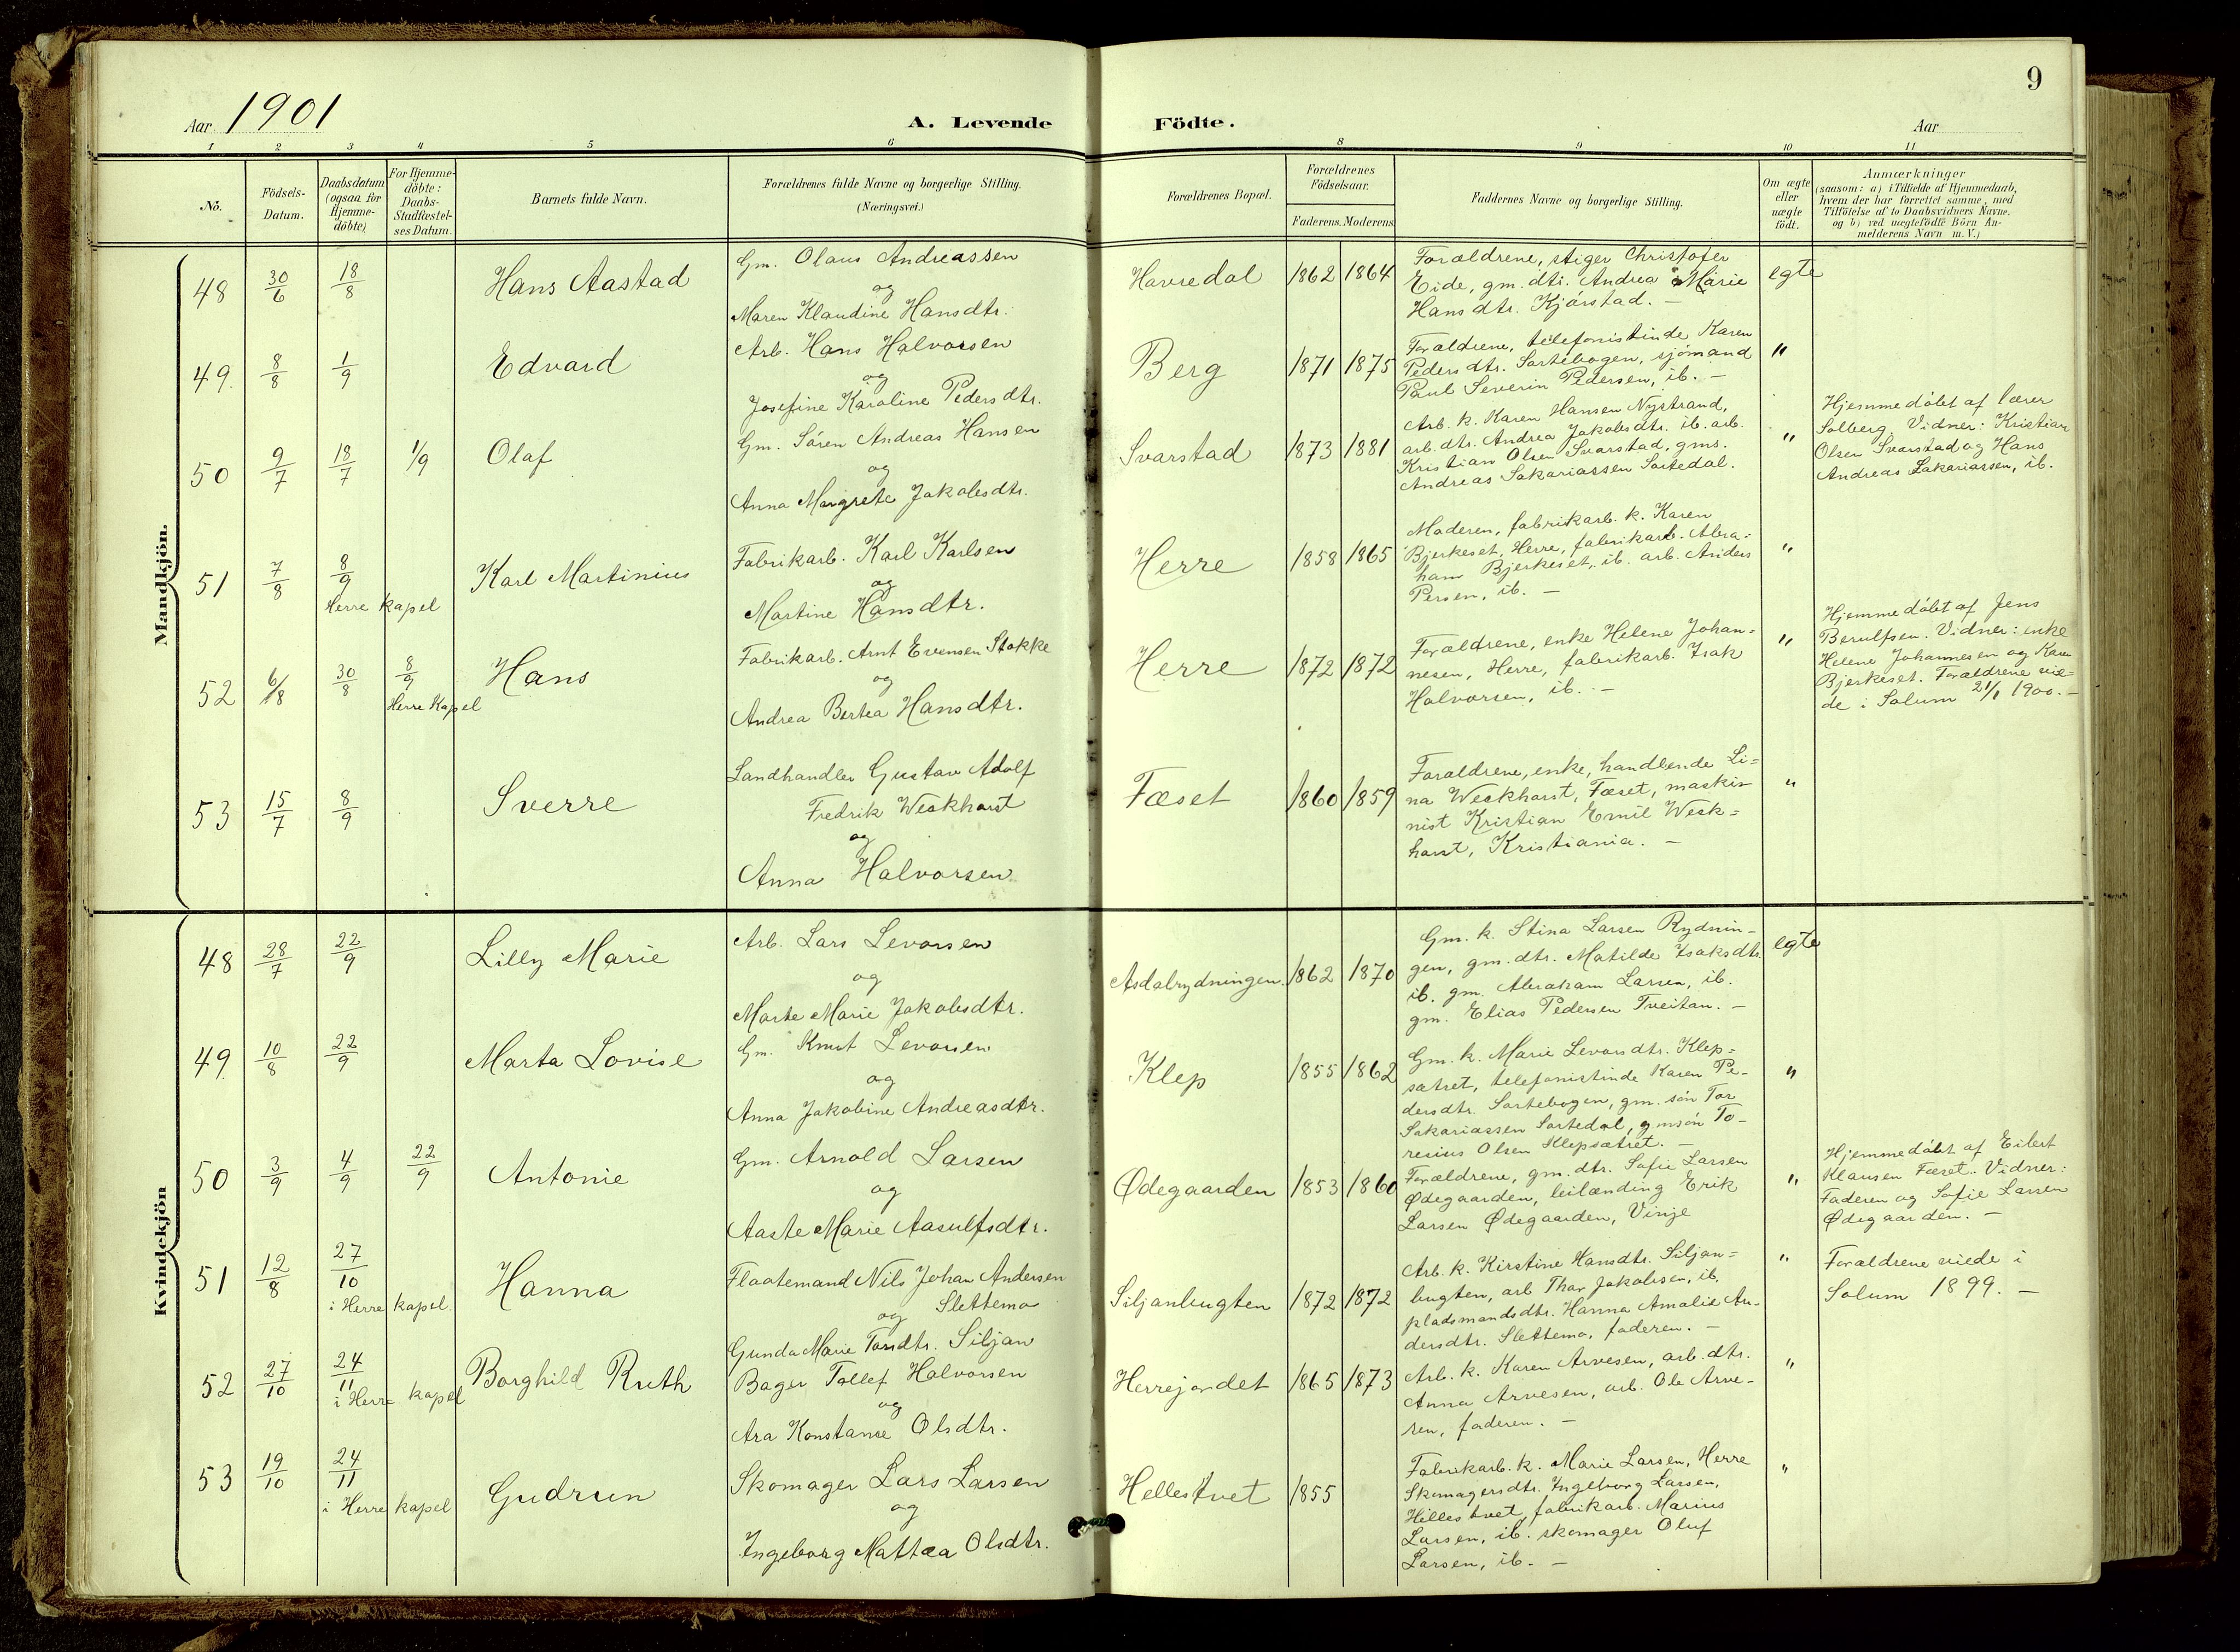 9
Aar 1901
A. Levende Födte.
Aar
1 2 3 4 5 6 8 9 10 11
No.
Födsels-
Datum.
Daabsdatum
(ogsaa for
Hjemme-
döbte)
For Hjemme-
döbte:
Daabs-
Stadfæstel-
ses Datum.
Barnets fulde Navn.
Forældrenes fulde Navne og borgerlige Stilling.
(Næringsvei.)
Forældrenes Bopæl.
Forældrenes
Födselsaar.
Faderens. Moderens
Faddernes Navne og borgerlige Stilling.
Om ægte
eller
uægte
födt.
Anmærkninger
(saasom: a) i Tilfælde af Hjemmedaab,
hvem der har forrettet samme, med
Tilföielse af to Daabsvidners Navne.
og b) ved uægtefödte Börn An-
melderens Navn m. V.)
Mandkjön.
48 30/6 18/8 Hans Aastad
Gm. Olaus Andreassen
og
Maren Klaudine Hansdtr.
Havredal 1862 1864
Forældrene, stiger Christofer
Eide, gm. dtr. Andrea Marie
Hansdtr. Kjørstad. —
egte
49. 8/8 1/9 Edvard
Arb. Hans Halvorsen
og
Josefine Karoline Pedersdtr.
Berg 1871 1875
Forældrene, telefonistinde Karen
Pedersdtr. Sortebogen, sjømand
Paul Severin Pedersen, ib. —
"
50 9/7 18/7 1/9 Olaf
Gm. Søren Andreas Hansen
og
Anna Margrete Jakobsdtr.
Svarstad 1873 1881
Arb. k. Karen Hansen Nystrand,
arb. dtr. Andrea Jakobsdtr. ib. arb.
Kristian Olsen Svarstad, gms.
Andreas Sakariassen Sortedal.
"
Hjemmedøbt af lærer
Solberg. Vidner: Kristian
Olsen Svarstad og Hans
Andreas Sakariassen, ib.
51 7/8 8/9 Karl Martinius
Herre kapel
Fabrikarb. Karl Karlsen
og
Martine Hansdtr.
Herre 1858 1865
Moderen, fabrikarb. k. Karen
Bjerkeset, Herre, fabrikarb. Abra-
ham Bjerkeset, ib. arb. Anders
Persen, ib. —
"
52 6/8 30/8 8/9 Hans
Herre Kapel
Fabrikarb. Arnt Evensen Stokke
og
Andrea Bertea Hansdtr.
Herre 1872 1872
Forældrene, enke Helene Johan-
nesen, Herre, fabrikarb. Isak
Halvorsen, ib. —
"
Hjemmedøbt af Jens
Berulfsen. Vidner: enke
Helene Johannesen og Karen
Bjerkeset. Forældrene vie-
de i Solum 21/1 1900. —
53 15/7 8/9 Sverre
Landhandler Gustav Adolf
Fredrik Weckhorst
og
Anna Halvorsen
Fæset 1860 1859
Forældrene, enke, handlende Li-
na Weckhorst, Fæset, maskin-
nist Kristian Emil Weck-
horst, Kristiania. —
"
Kvindekjön
48 28/7 22/9 Lilly Marie
Arb. Lars Levorsen
og
Marte Marie Jakobsdtr.
Asdalrydningen. 1862 1870
Gm. k. Stina Larsen Rydnin-
gen, gm. dtr. Matilde Isaksdtr.
ib. gm. Abraham Larsen, ib.
gm. Elias Pedersen Tveitan. —
egte
49. 10/8 22/9 Marta Lovise
Gm. Knut Levorsen
og
Anna Jakobine Andreasdtr.
Klep 1855 1862
Gm. k. Marie Levorsdtr. Klep-
sætret, telefonistinde Karen Pe-
dersdtr. Sortebogen, gm. søn Tor
Sakariassen Sortedal, gmsøn To-
resius Olsen Klepsætret. —
"
50 3/9 4/9 22/9 Antonie
Gm. Arnold Larsen
og
Aaste Marie Aasulfsdtr.
Ødegaarden 1853 1860
Forældrene, gm. dtr. Sofie Larsen
Ødegaarden, leilænding Erik
Larsen Ødegaarden, Vinje
"
Hjemmedøbt af Eilert
Klausen Fæset. Vidner:
Faderen og Sofie Larsen
Ødegaarden. —
51 12/8 27/10 Hanna
i Herre kapel
Flaatemand Nils Johan Andersen
og Slettemo
Gunda Marie Torsdtr. Siljan
Siljanbugten 1872 1872
Arb. k. Kirstine Hansdtr. Siljan-
bugten, arb Thor Jakobsen, ib.
pladsmandsdtr. Hanna Amalie An-
dersdtr. Slettemo, faderen. —
"
Forældrene viede i
Solum 1899. —
52 27/10 24/11 Borghild Ruth
i Herre kapel
Bager Tollef Halvorsen
og
Ara Konstanse Olsdtr.
Herrejordet 1865 1873
Arb. k. Karen Arvesen, arb. dtr.
Anna Arvesen, arb. Ole Arve-
sen, faderen. —
"
53 19/10 24/11 Gudrun
i Herre kapel
Skomager Lars Larsen
og
Ingeborg Mattea Olsdtr.
Hellestvet 1855
Fabrikarb. k. Marie Larsen, Herre
Skomagersdtr. Ingeborg Larsen,
Hillestvet, fabrikarb. Marius
Larsen, ib. skomager Oluf
Larsen, ib. —
"